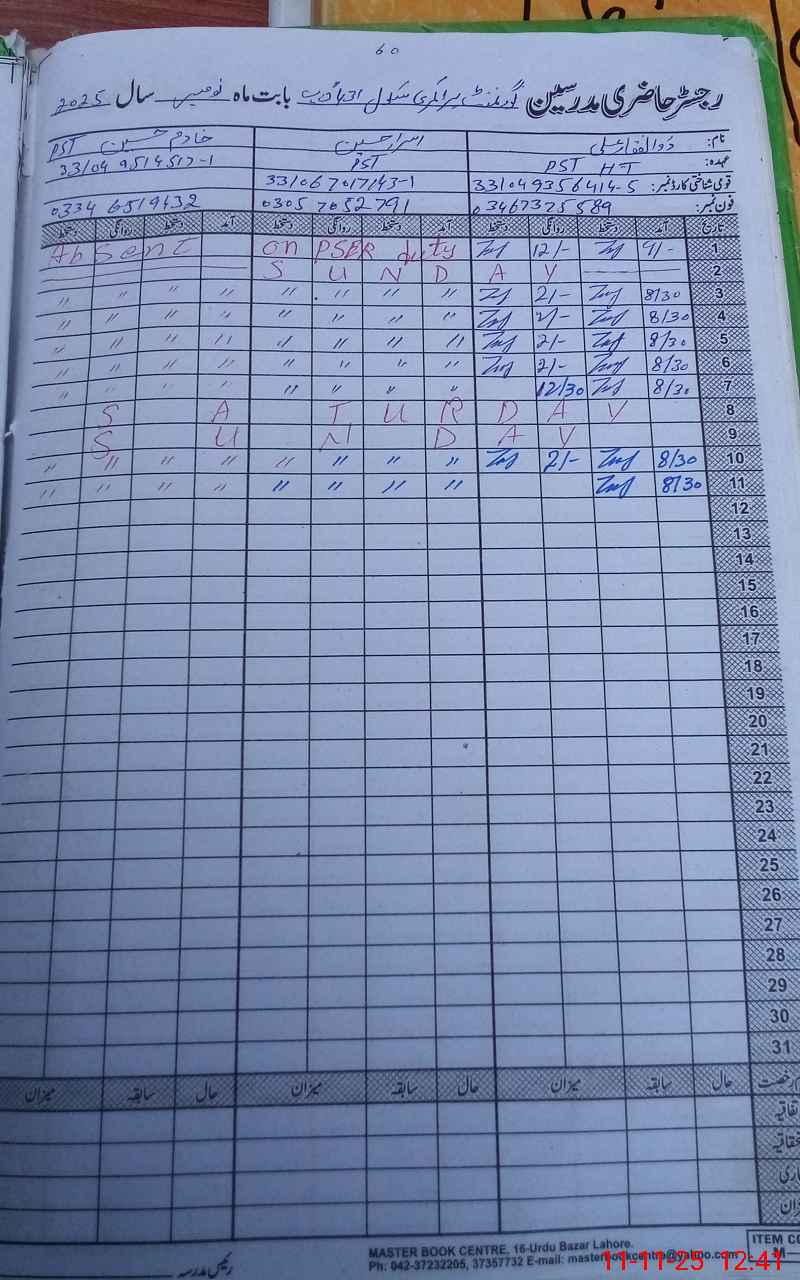 60
رجسٹر حاضری مدرسین گورنمنٹ پرائمری سکول بابت ماہ نومبر سال 2025
نام: ذوالفقار علی اسرار حسین خادم حسین PST
عہدہ: PST HT PST 33104 9514517-1
قومی شناختی کارڈ نمبر: 33104 9356414-5 33106 7017143-1
فون نمبر: 03467375589 0305 7052791 0334 6519432
تاریخ آمد دستخط روانگی دستخط آمد دستخط روانگی دستخط آمد دستخط روانگی دستخط
1 9/- 12/- on PSER duty Absent
2 S U N D A Y
3 8/30 2/- " " " " " " " "
4 8/30 2/- " " " " " " " "
5 8/30 2/- " " " " " " " "
6 8/30 2/- " " " " " " " "
7 8/30 12/30 " " " " " " " "
8 S A T U R D A Y
9 S U N D A Y
10 8/30 2/- " " " " " " " "
11 8/30 " " " " " " " "
12
13
14
15
16
17
18
19
20
21
22
23
24
25
26
27
28
29
30
31
رخصت حال سابقہ میزان حال سابقہ میزان حال سابقہ میزان
رئیس مدرسہ
MASTER BOOK CENTRE, 16-Urdu Bazar Lahore.
Ph: 042-37232205, 37357732 E-mail: masterbookcentre@yahoo.com
ITEM CO
M
11-11-25 12.41